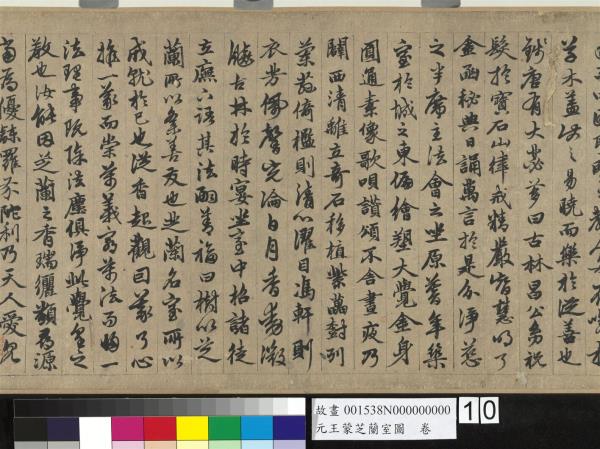 草木蓋之易曉而樂於從善也
錢唐有大苾芻曰古林昌公祝
髮於寶石山律戒精嚴宿慧明了
金函秘典日誦萬言於是分淨慈
之半席主法會之坐原年築
室於城之東偏繪塑大覺金身
圓通素像歌唄讚頌不舍晝夜乃
闢西清離立奇石移植紫對列
倚檻則清心濯目馮軒則
衣芳佩馨完淪日月香澂
古林於時宴坐室中招諸徒
立廡下語其法嗣善福曰樹以芝
蘭所以象善友也芝蘭名室所以
戒於己也從香起觀因象了心
推一象而崇萬義窮萬法而歸一
法理事既除法塵俱淨此覺皇之
教也汝能因芝蘭之香瑞類尋源
當為優鉢羅芬陀利乃天人愛見
故畫 001538N000000000
元王蒙芝蘭室圖 卷
10